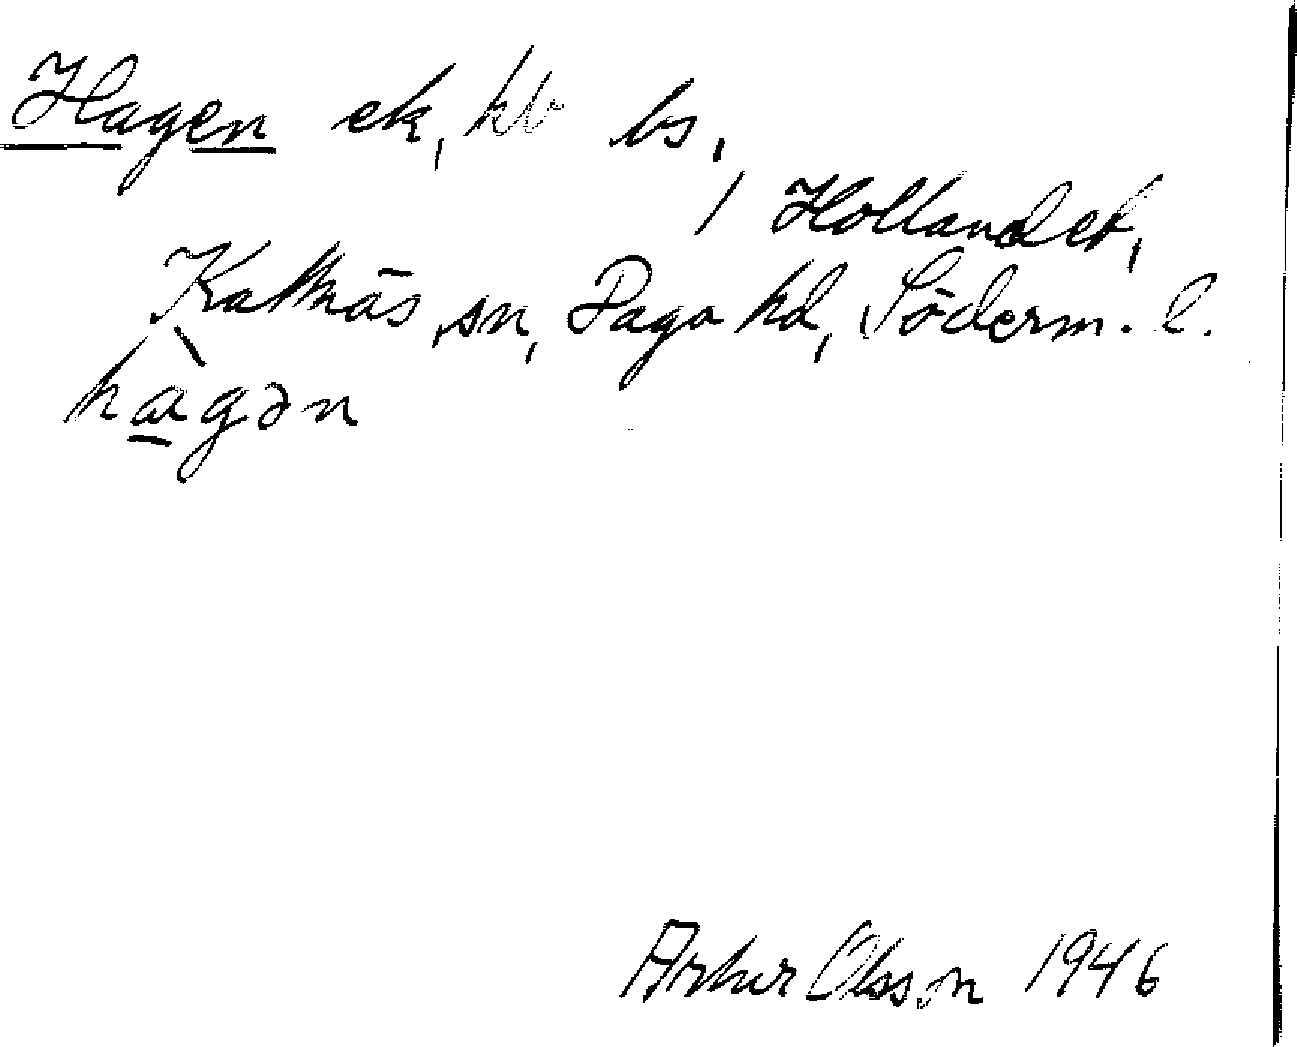 Hagen ek, kb ls,
/ Hollandet,
Kattnäs sn, Daga hd, Söderm. l.
hàgən
Arthur Olsson 1946